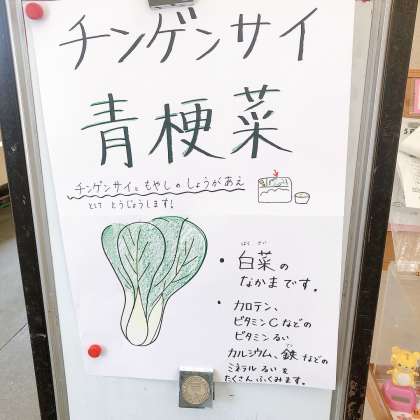 チンゲンサイ
青梗菜
チンゲンサイともやしのしょうがあえ
として とうじょうします!
・白菜の
なかまです。
・カロテン、
ビタミンCなどの
ビタミンるい
カルシウム、鉄などの
ミネラルるいを
たくさんふくみます。